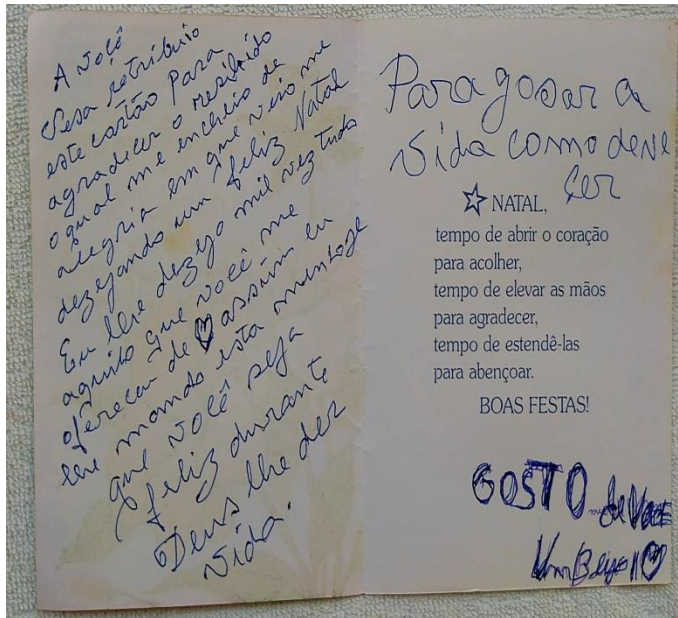 A você
Sesa retribuio
este cartão Para
agradecer o resibido
o qual me encheio de
alegria em que veio me
dezejando um feliz Natal
Eu lhe dezejo mil vez tudo
aquilo que você me
ofereceu de assim eu
lhe mando esta mensage
que você seja
feliz durante
Deus lhe der
vida.
Para gosar a
vida como deve
ser
NATAL,
tempo de abrir o coração
para acolher,
tempo de elevar as mãos
para agradecer,
tempo de estendê-las
para abençoar.
BOAS FESTAS!
GOSTO de Você
Um Beijo